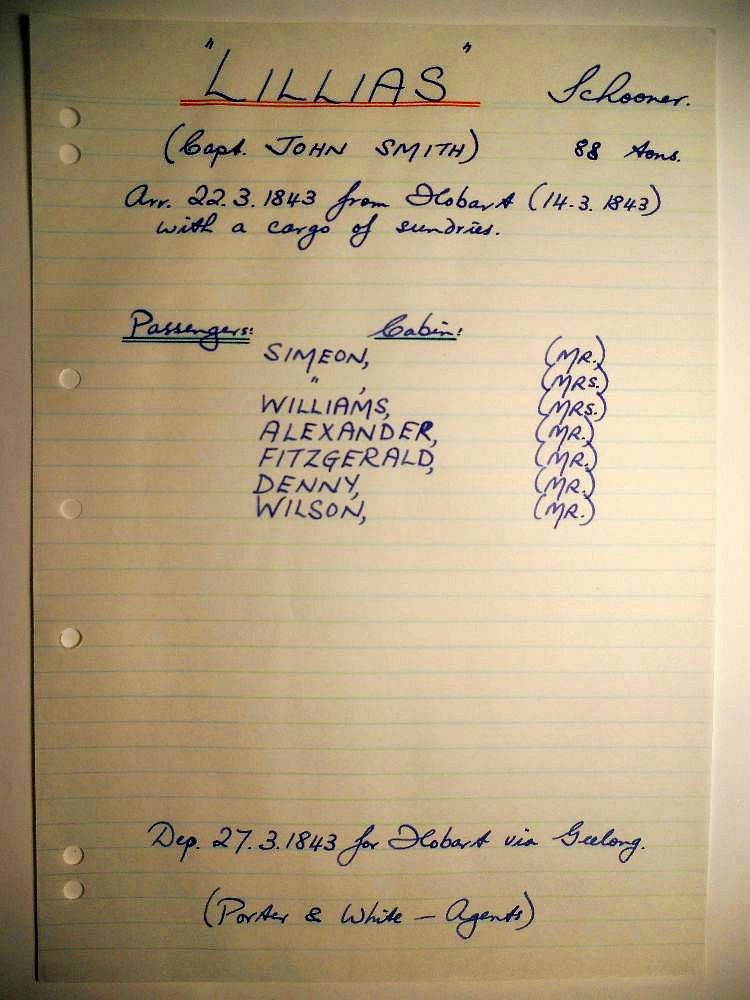 "LILLIAS" Schooner.
(Capt. JOHN SMITH) 88 tons.
Arr. 22.3.1843 from Hobart (14.3.1843)
with a cargo of sundries.
Passengers: Cabin:
SIMEON, (MR.)
" , (MRS.)
WILLIAMS, (MRS.)
ALEXANDER, (MR.)
FITZGERALD, (MR.)
DENNY, (MR.)
WILSON, (MR.)
Dep. 27.3.1843 for Hobart via Geelong.
(Porter & White - Agents)